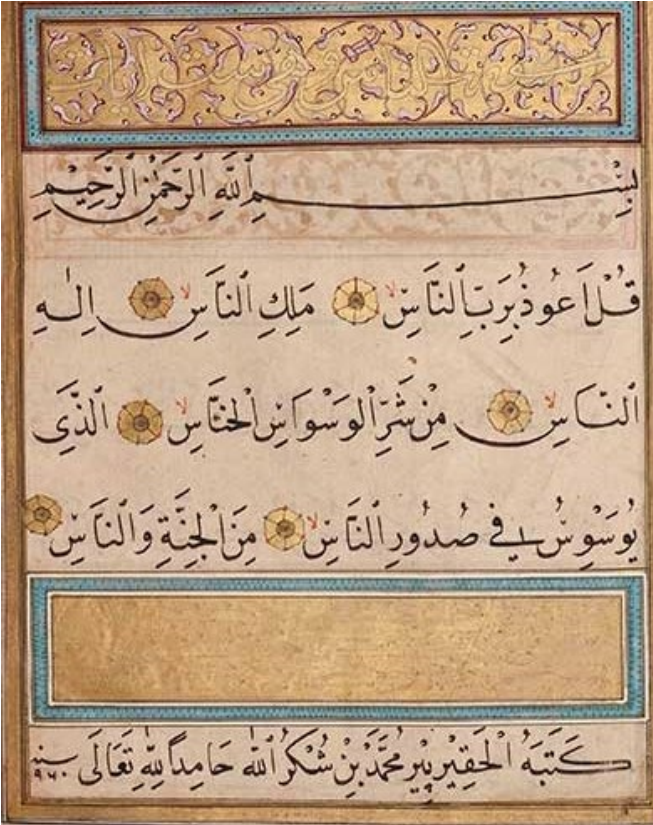 سورة الناس وهى ست آيات
بِسْمِ ٱللَّهِ ٱلرَّحْمٰنِ ٱلرَّحِيمِ
قُلْ اَعُوذُ بِرَبِّ ٱلنَّاسِ لا مَلِكِ ٱلنَّاسِ لا اِلٰهِ
ٱلنَّاسِ لا مِنْ شَرِّ ٱلْوَسْوَاسِ ٱلْخَنَّاسِ لا ٱلَّذِى
يُوَسْوِسُ فِى صُدُورِ ٱلنَّاسِ لا مِنَ ٱلْجِنَّةِ وَٱلنَّاسِ
كَتَبَهُ ٱلْحَقِيْر پِيْر مُحَمَّدْ بِنْ شُكْرُ ٱللّٰه حَامِدًا لِلّٰهِ تَعَالَى سنه ٩٦٠